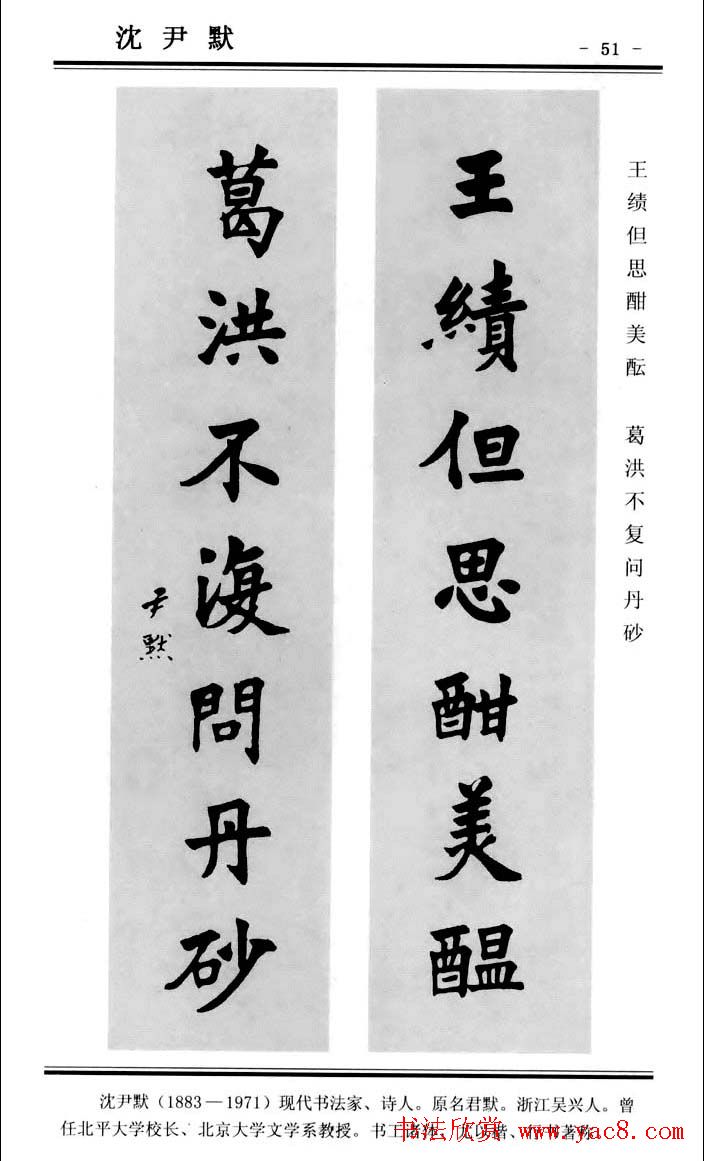 沈尹默
- 51 -
王绩但思酣美酝 葛洪不复问丹砂
王績但思酣美醞
葛洪不復問丹砂
尹默
沈尹默(1883—1971)现代书法家、诗人。原名君默。浙江吴兴人。曾
任北平大学校长、北京大学文学系教授。书工诸体，尤以楷、行书著称。
书法欣赏 www.yac8.com